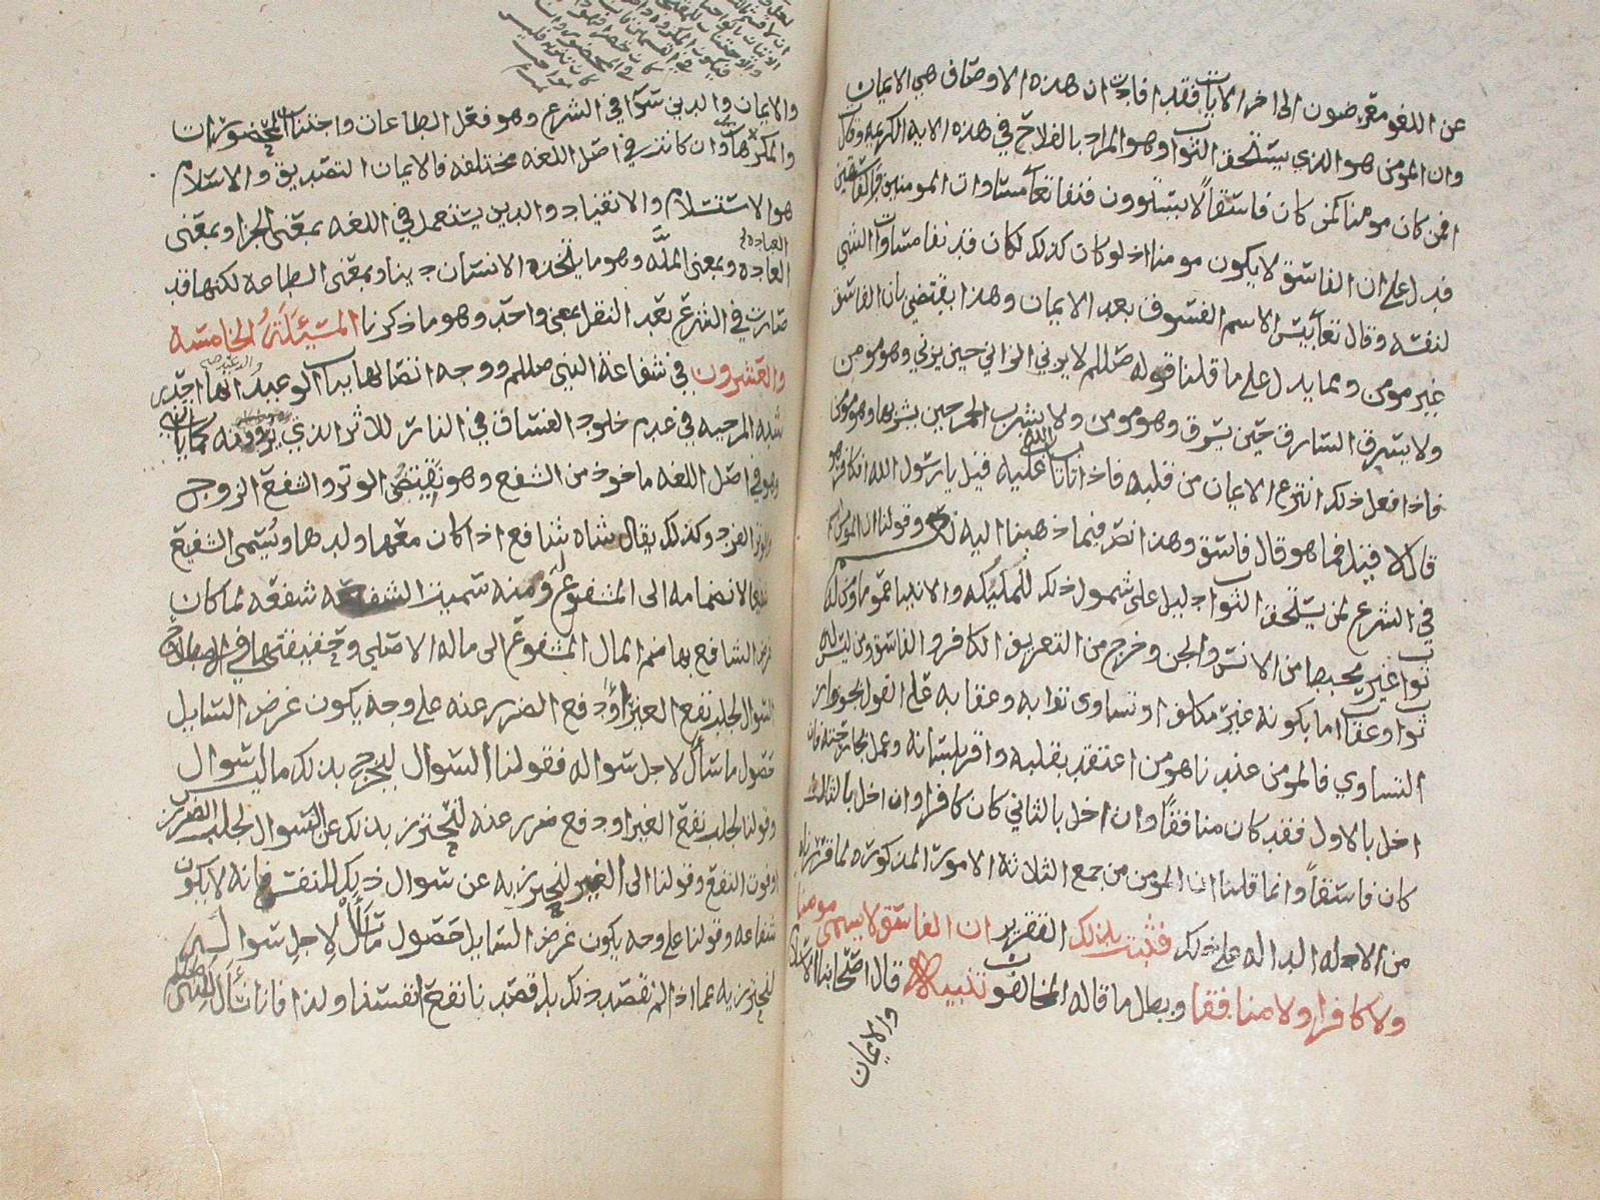 عن اللغو معرضون الى اخر الايات فقد افادت ان هذه الاوصاف هي الايمان
وان المومن هو الذي يستحق الثواب وهو المراد بالفلاح في هذه الايه الكريمه وقال
افمن كان مومنا كمن كان فاسقا لا يستوون فنفا تعا مساوات المومنين
فدل على ان الفاسق لا يكون مومنا اذ لو كان كذلك لكان قد نفا مساوات الشي
لنفسه وقال تعا بيس الاسم الفسوق بعد الايمان وهذا يقتضي بان الفاسق
غير مومن ومما يدل على ما قلنا قوله صللم لا يزني الزاني حين يزني وهو مومن
ولا يسرق السارق حين يسرق وهو مومن ولا يشرب الخمر حين يشربها وهو مومن
فاذا فعل ذلك انتزع الايمان من قلبه فاذا تاب تاب الله عليه قيل يا رسول الله افكافر هو
قال لا قيل فما هو قال فاسق وهذا نص فيما ذهبنا اليه وقولنا ان المومن اسم
في الشرع لمن يستحق الثواب دليل على شمول ذلك للمليكه والانبيا عموما ومن له
ثواب غير محبط من الانس والجن وخرج من التعريف الكافر والفاسق ومن ليس له
ثواب وعقاب اما بكونه غير مكلف او تساوى ثوابه وعقابه على القول بجواز
التساوي فالمومن عندنا هو من اعتقد بقلبه واقر بلسانه وعمل بجارحته فان
اخل بالاول فقد كان منافقا وان اخل بالثاني كان كافرا وان اخل بالثالث
كان فاسقا وانما قلنا ان المومن من جمع الثلاثة الامور المذكوره لما قررناه
من الادله الداله على ذلك فثبت بذلك التقرير ان الفاسق لا يسمى مومنا
ولا كافرا ولا منافقا وبطل ما قاله المخالفون تنبيه قال اصحابنا الاسلام
والايمان
والايمان والدين سوا في الشرع وهو فعل الطاعات واجتناب المحضورات
والمكروهات وان كانت في اصل اللغه مختلفه فالايمان التصديق والاسلام
هو الاستسلام والانقياد والدين يستعمل في اللغه بمعنى الجزا وبمعنى
العاده
العاده وبمعنى المله وهو ما يتخذه الانسان دينا وبمعنى الطاعه لكنها قد
صارت في الشرع بعد النقل بمعنى واحد وهو ما ذكرنا المسئلة الخامسه
والعشرون في شفاعة النبي صللم ووجه اتصالها بباب الوعيد انها احدى
شبه المرجيه في عدم خلود الفساق في النار للاثر الذي يروونه كما ياتي
وهو في اصل اللغه ماخوذ من الشفع وهو نقيض الوتر والشفع الزوج
والوتر الفرد وكذلك يقال شاه شافع اذا كان معها ولدها وسمى الشفيع
شفيعا لانضمامه الى المشفوع له ومنه سميت الشفعه شفعه لما كان
غرض الشافع بها ضم المال المشفوع الى ماله الاصلي وحقيقتها في الاصطلاح
السوال لجلب نفع الغير او دفع الضرر عنه على وجه يكون غرض السايل
حصول ما سأل لاجل سواله فقولنا السوال ليخرج بذلك ما ليس بسوال
وقولنا لجلب نفع الغير او دفع ضرر عنه لنحترز بذلك عن السوال لجلب الضرر
او فوت النفع وقولنا الى الغير لنحترز به عن سوال ذلك للنفس فانه لا يكون
شفاعه وقولنا على وجه يكون غرض السايل حصول ما سأل لاجل سواله
لنحترز به عما اذا لم نقصد ذلك بل قصدنا نفع انفسنا ولذا فانا نسأل